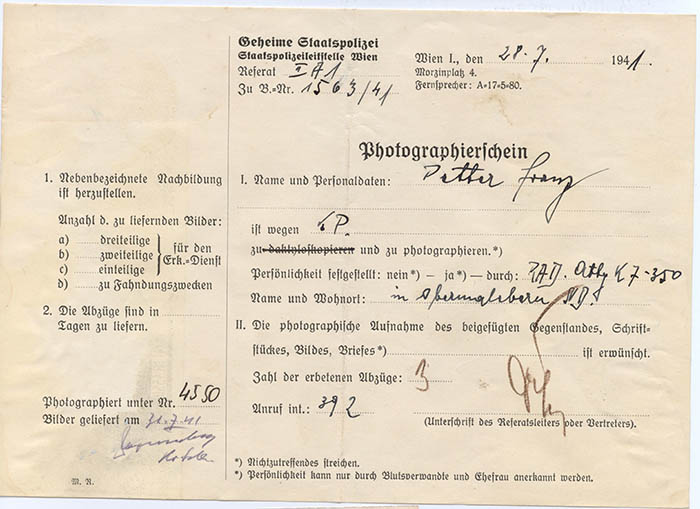 Geheime Staatspolizei
Staatspolizeileitstelle Wien
Referat II A1
Zu B.=Nr. 1563/41
Wien I., den 28. 7. 1941.
Morzinplatz 4.
Fernsprecher: A=17=5=80.
Photographierschein
1. Nebenbezeichnete Nachbildung
ist herzustellen.
Anzahl d. zu liefernden Bilder:
a) dreiteilige
b) zweiteilige
c) einteilige
für den
Erk.=Dienst
d) zu Fahndungszwecken
2. Die Abzüge sind in
Tagen zu liefern.
Photographiert unter Nr. 4550
Bilder geliefert am 31.7.41
M. R.
I. Name und Personaldaten: Franz
ist wegen P.
zu daktyloskopieren und zu photographieren.*)
Persönlichkeit festgestellt: nein*) – ja*) – durch: RAD. K 7-350
Name und Wohnort: in
II. Die photographische Aufnahme des beigefügten Gegenstandes, Schrift=
stückes, Bildes, Briefes*) ist erwünscht.
Zahl der erbetenen Abzüge: 3
Anruf int.: 392
(Unterschrift des Referatsleiters oder Vertreters).
*) Nichtzutreffendes streichen.
*) Persönlichkeit kann nur durch Blutsverwandte und Ehefrau anerkannt werden.